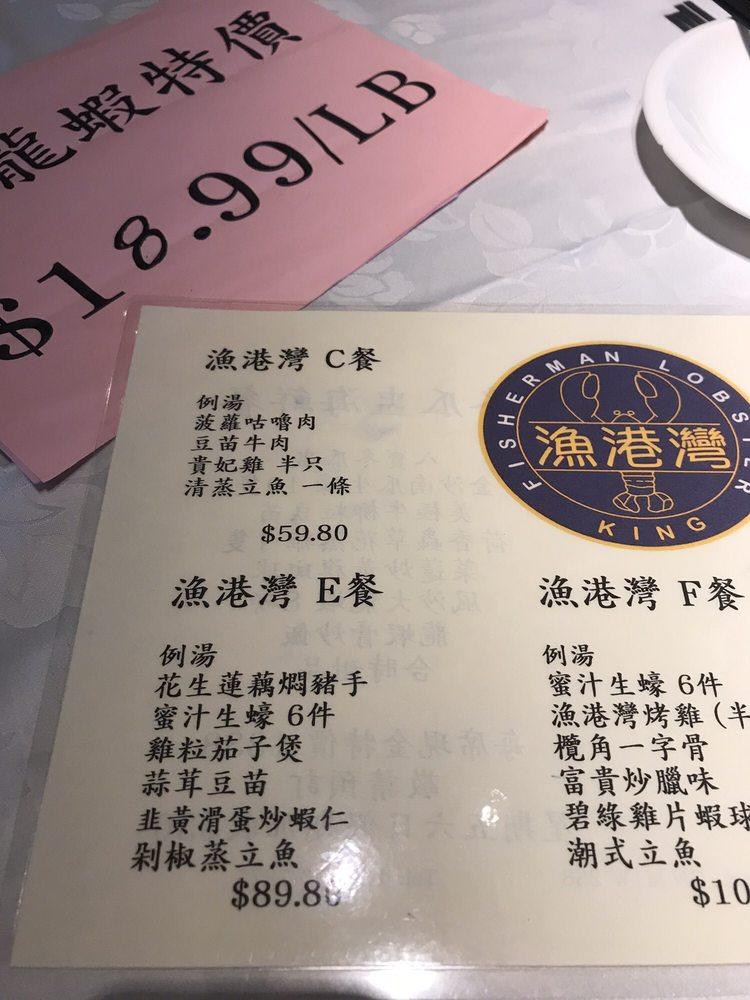 龍蝦特價
$18.99/LB
漁港灣 C餐
例湯
菠蘿咕嚕肉
豆苗牛肉
貴妃雞 半只
清蒸立魚 一條
$59.80
FISHERMAN LOBSTER
漁港灣
KING
漁港灣 E餐
例湯
花生蓮藕燜豬手
蜜汁生蠔 6件
雞粒茄子煲
蒜茸豆苗
韭黃滑蛋炒蝦仁
剁椒蒸立魚
$89.80
漁港灣 F餐
例湯
蜜汁生蠔 6件
漁港灣烤雞 (半
欖角一字骨
富貴炒臘味
碧綠雞片蝦球
潮式立魚
$10